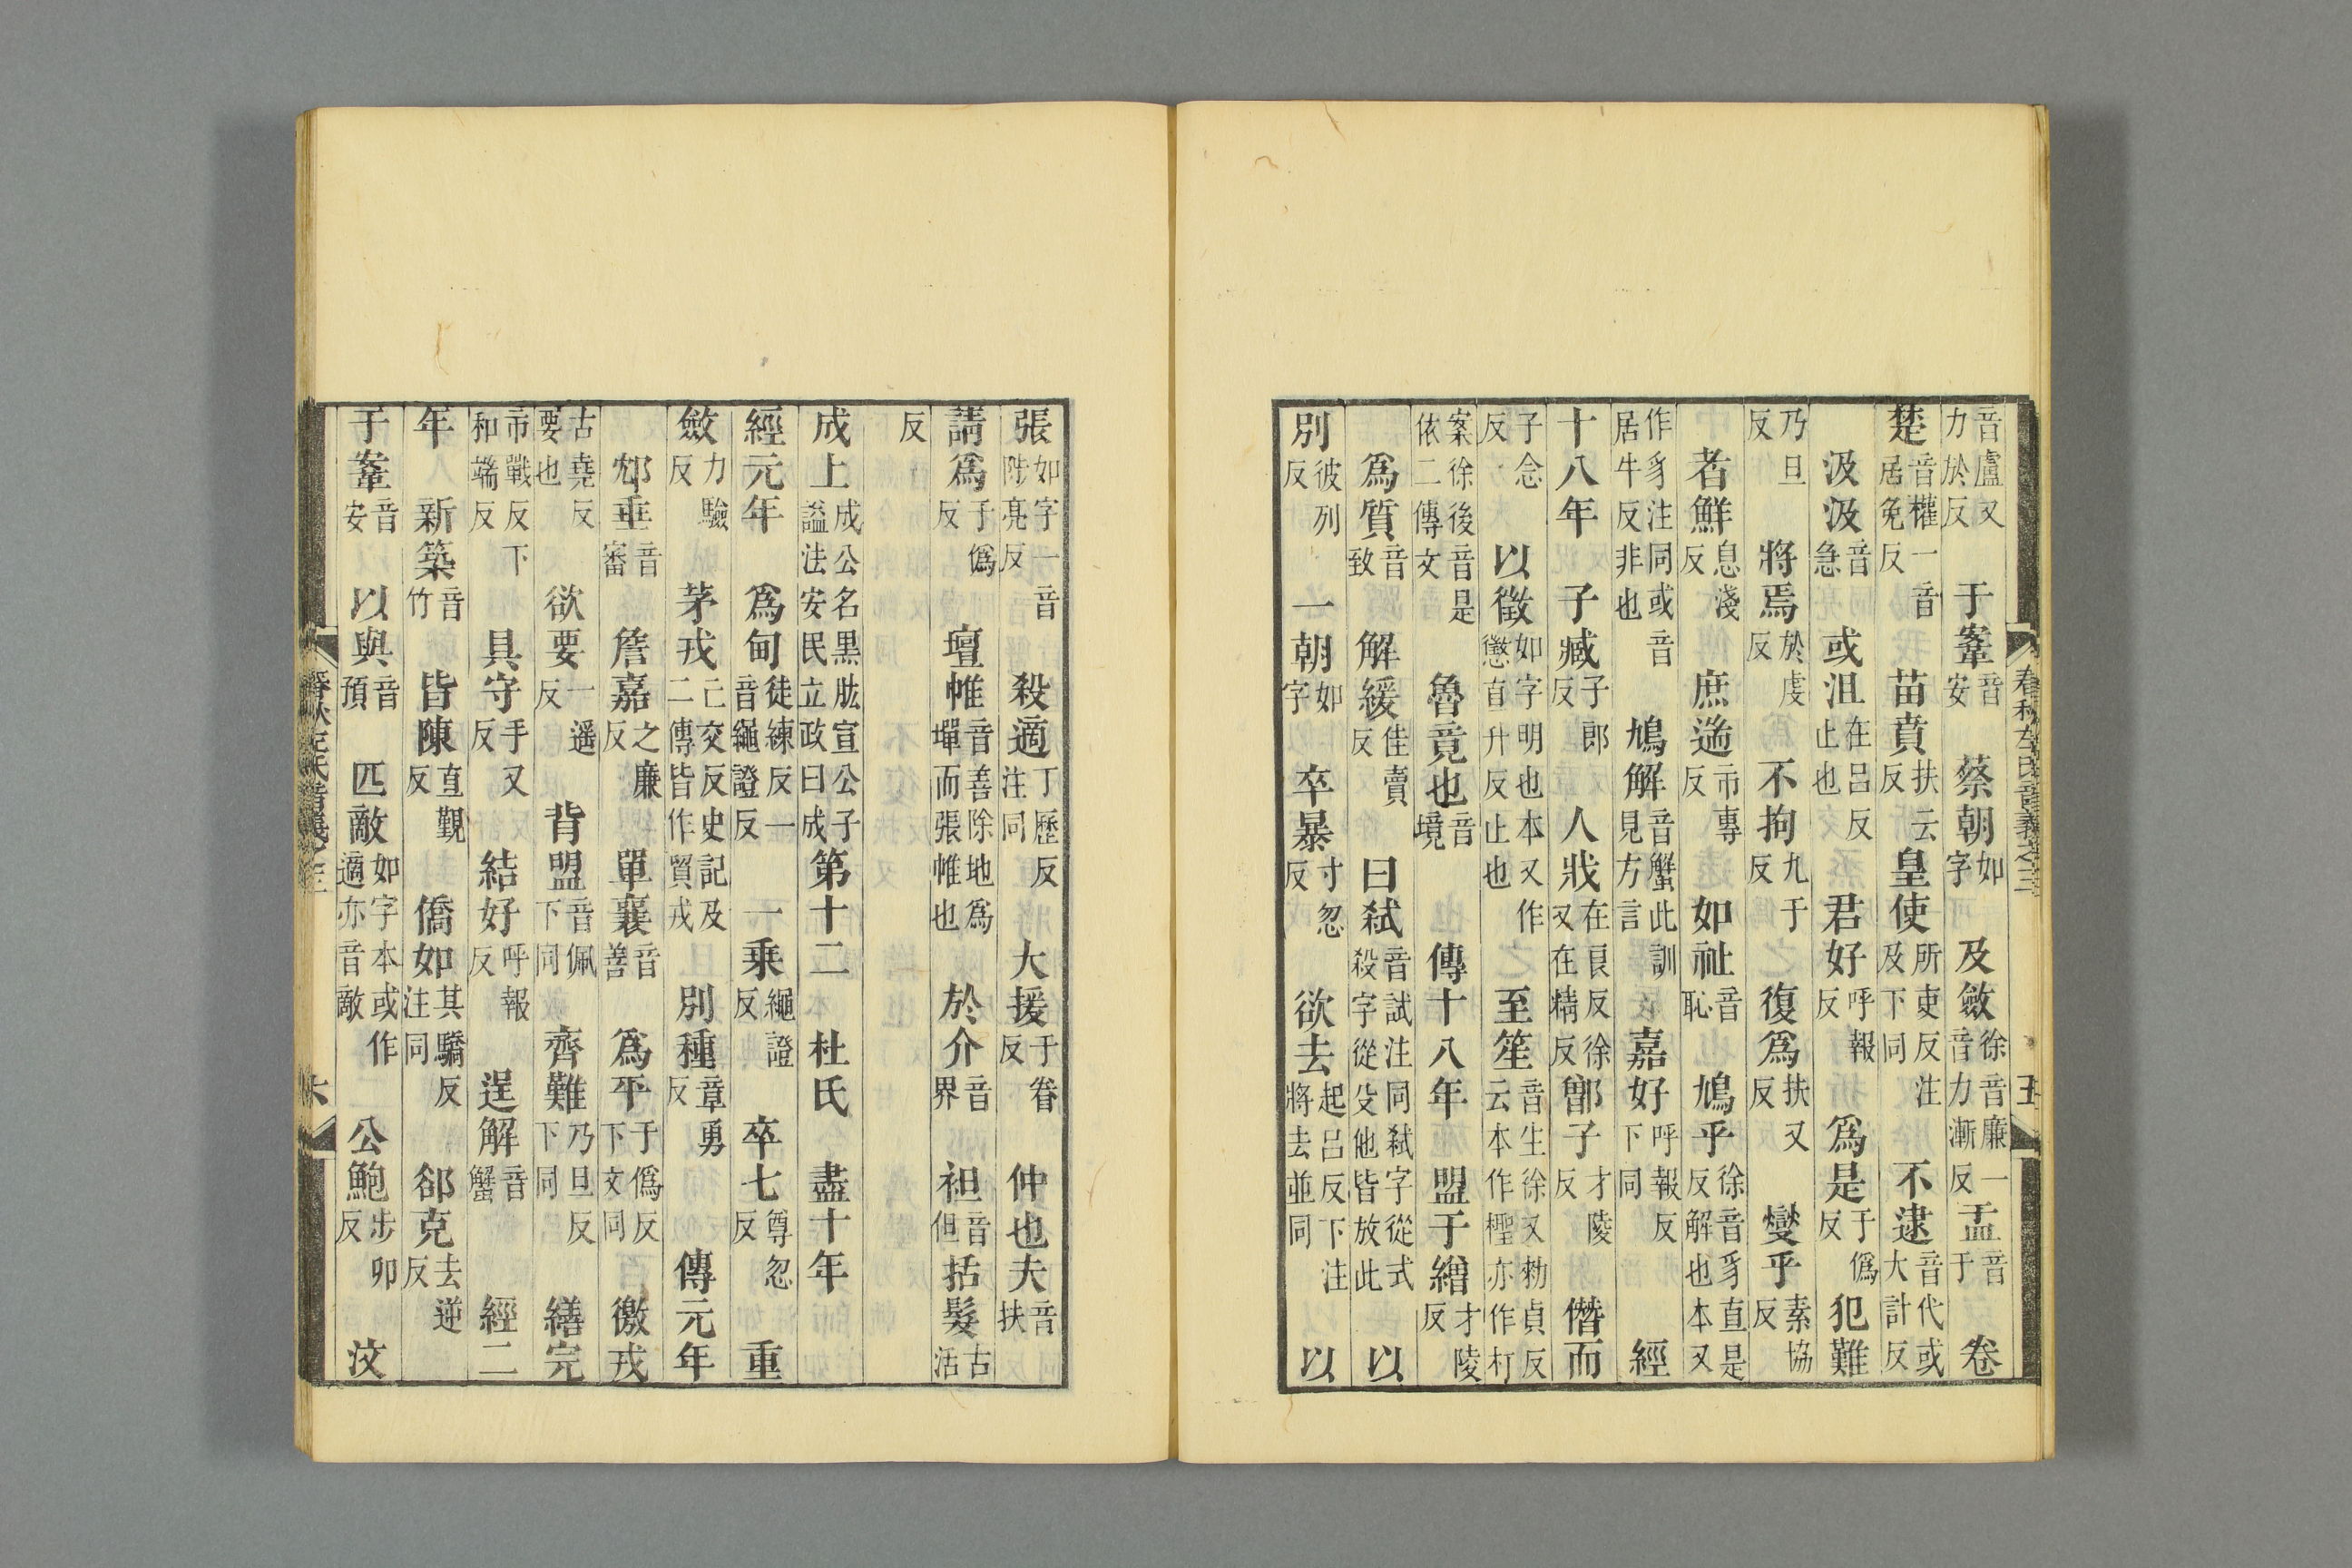 春秋左氏音義之三　五
音盧又力於反　于鞌音安　蔡朝如字　及斂徐音廉一音力漸反　盂音于　卷
楚音權一音居免反　苗賁扶云反　皇使所吏反注及下同　不逮音代或大計反
汲汲音急　或沮在呂反止也　君好呼報反　爲是于僞反　犯難
乃旦反　將焉於虔反　不拘九于反　復爲扶又反　燮乎素協反
者鮮息淺反　庶遄市專反　如祉音恥　鳩乎徐音豸直是反解也本又
作豸注同或音居牛反非也　鳩解音蟹此訓見方言　嘉好呼報反下同　經
十八年　子臧子郎反　人戕在良反徐又在精反　鄫子才陵反　僭而
子念反　以徵如字明也本又作懲直升反止也　至笙音生徐又勑貞反云本作檉亦作朾
案徐後音是依二傳文　魯竟也音境　傳十八年　盟于繒才陵反
爲質音致　解緩佳賣反　曰弑音試注同弑字從式殺字從殳他皆放此　以
別彼列反　一朝如字　卒暴寸忽反　欲去起呂反下注將去並同　以
張如字一音陟亮反　殺適丁歷反注同　大援于眷反　仲也夫音扶
請爲于僞反　壇帷音善除地爲墠而張帷也　於介音界　袒音但　括髮古活
反
成上成公名黑肱宣公子謚法安民立政曰成　第十二　杜氏　盡十年
經元年　爲甸徒練反一音繩證反　一乘繩證反　卒七尊忽反　重
斂力驗反　茅戎亡交反史記及二傳皆作貿戎　別種章勇反　傳元年
邥垂音審　詹嘉之廉反　單襄音善　爲平于僞反下文同　徼戎
古堯反要也　欲要一遥反　背盟音佩下同　齊難乃旦反下同　繕完
市戰反下和端反　具守手又反　結好呼報反　逞解音蟹　經二
年　新築音竹　皆陳直覲反　僑如其驕反注同　郤克去逆反
于鞌音安　以與音預　匹敵如字本或作適亦音敵　公鮑步卯反　汶
春秋左氏音義之三　六